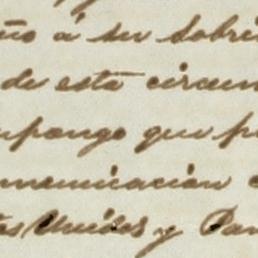 ño á su sobri
de esta circun
upongo que p
municacion
os Unidos y Pan